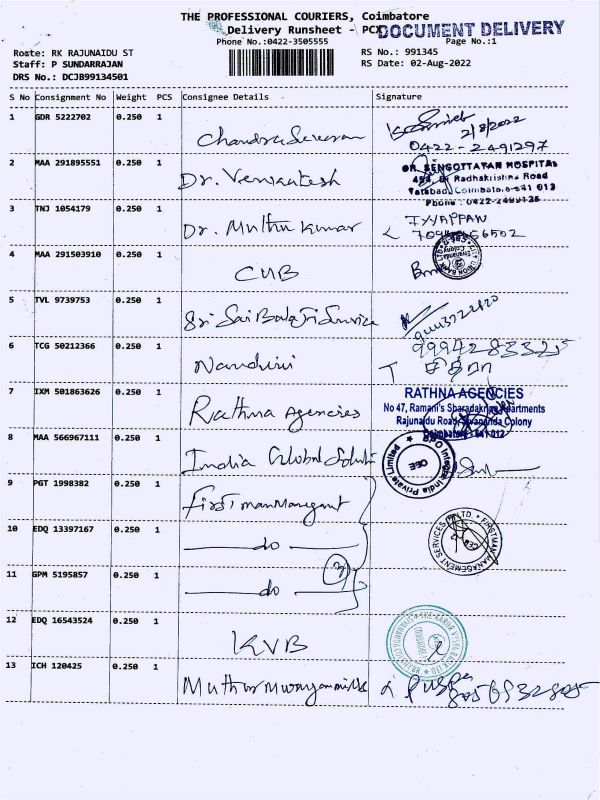 THE PROFESSIONAL COURIERS, Coimbatore
Delivery Runsheet - PCX
DOCUMENT DELIVERY
Phone No.:0422-3505555
Page No.:1
Route: RK RAJUNAIDU ST
RS No.: 991345
Staff: P SUNDARRAJAN
RS Date: 02-Aug-2022
DRS No.: DCJB99134501
S No Consignment No Weight PCS Consignee Details Signature
1 GDR 5222702 0.250 1
2/8/2022
0422-2491297
2 MAA 291895551 0.250 1 Dr. Venkatesh
DR. SENGOTTAIAN HOSPITAL
Radhakrishna Road
Tatabad, Coimbatore-641 012
Phone : 0422-2499125
3 TNJ 1054179 0.250 1 Dr. Muthu Kumar
IYYAPPAN
4 MAA 291503910 0.250 1 CUB
5 TVL 9739753 0.250 1 Sri Sai Balaji Service
6 TCG 50212366 0.250 1 Nandhini
7 IXM 501863626 0.250 1 Rathna Agencies
RATHNA AGENCIES
No 47, Ramani's Sharadakripa Apartments
Rajunaidu Road, Sivananda Colony
Coimbatore - 641 012
8 MAA 566967111 0.250 1 India Global Soluti
India Private Limited
9 PGT 1998382 0.250 1
FIRSTMAN MANAGEMENT SERVICES (P) LTD.
10 EDQ 13397167 0.250 1 do
11 GPM 5195857 0.250 1 do
3
12 EDQ 16543524 0.250 1 KVB
13 ICH 120425 0.250 1